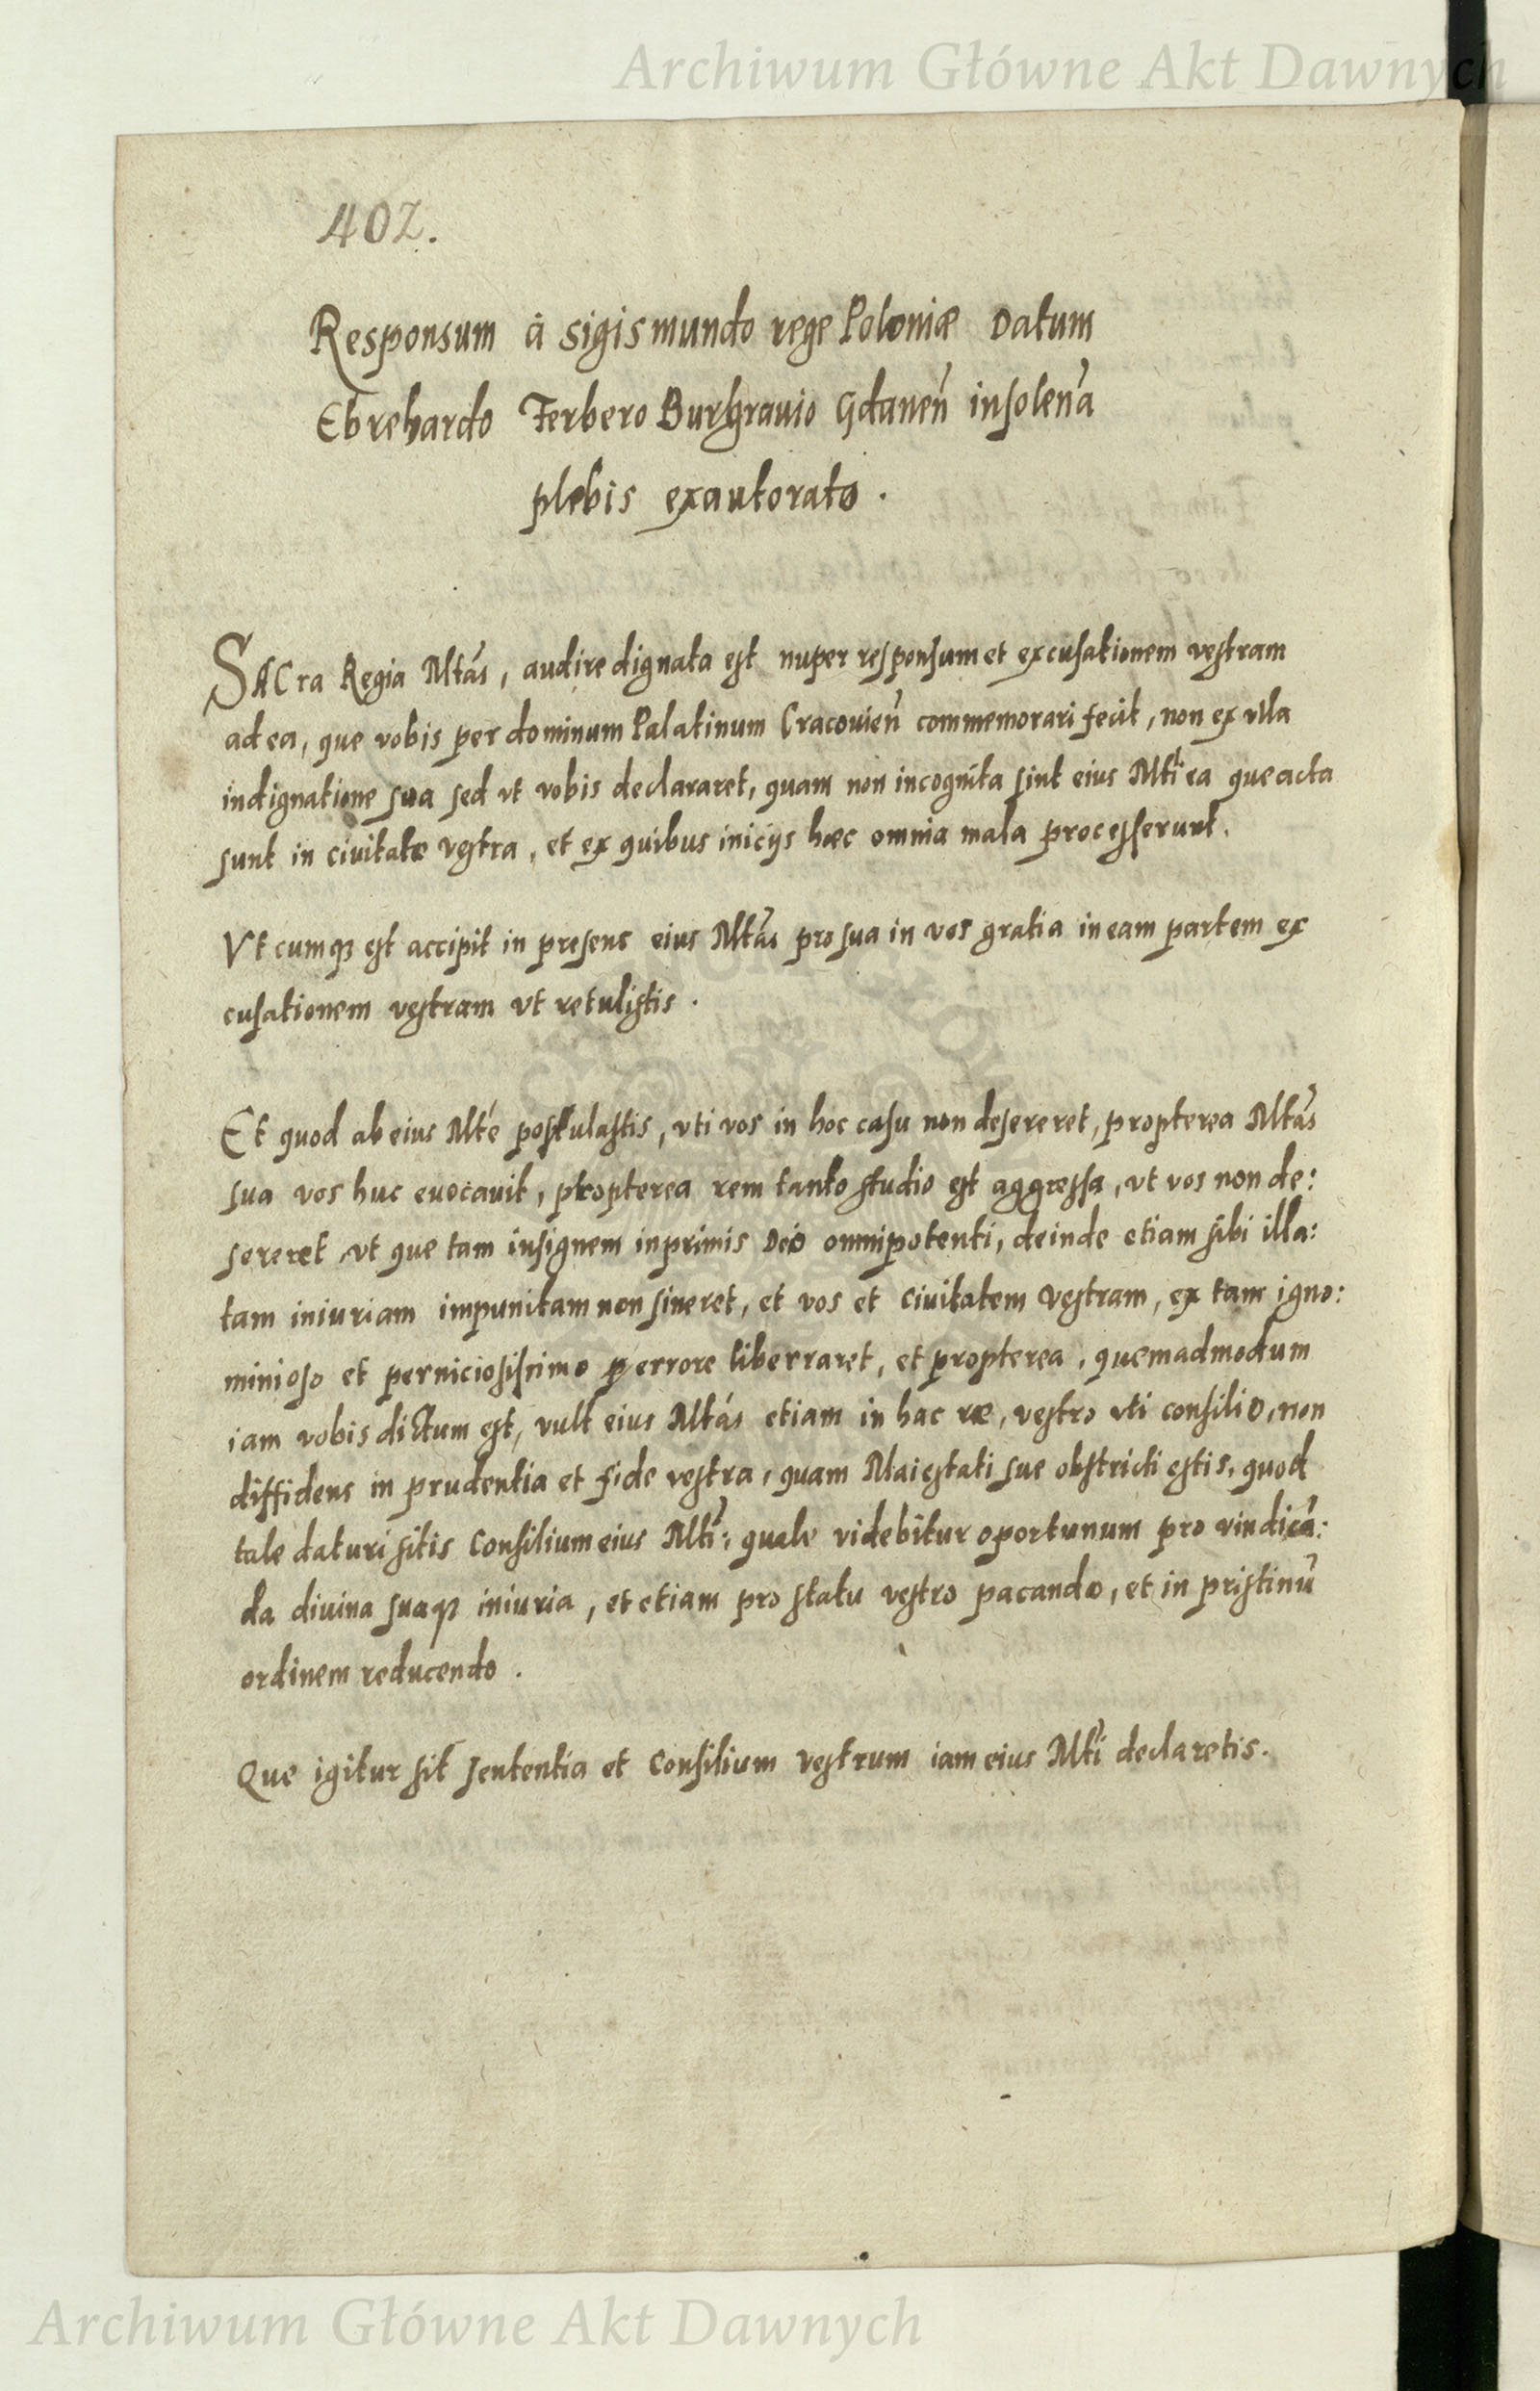 Archiwum Główne Akt Dawnych
402.
Responsum à Sigismundo rege Poloniæ Datum
Ebrehardo Ferbero Burhgravio Gdanen̄ insolen̄a
plebis exautorato.
SACra Regia Mtás, audire dignata est nuper responsum et excusationem vestram
ad ea, que vobis per dominum Palatinum Cracouien̄ commemorari fecit, non ex vlla
indignatione sua sed vt vobis declararet, quam non incognita sint eius Mti ea que acta
sunt in civitate vestra, et ex quibus inicijs hæc omnia mala processerunt.
Vt cumqȝ est accipit in presens eius Mtás pro sua in vos gratia in eam partem ex
cusationem vestram vt retulistis.
Et quod ab eius Mté postulastis, vti vos in hoc casu non desereret, propterea Mtás
sua vos huc euocauit, propterea rem tanto studio est aggressa, vt vos non de:
sereret vt que tam insignem inprimis Deo omnipotenti, deinde etiam sibi illa:
tam iniuriam impunitam non sineret, et vos et Civitatem vestram, ex tam igno:
minioso et perniciosissimo errore liberraret, et propterea, quemadmodum
iam vobis dictum est, vult eius Mtás etiam in hac re, vestro vti consilio, non
diffidens in prudentia et fide vestra, quam Maiestati sue obstricti estis, quod
tale daturi sitis Consilium eius Mti: quale videbitur oportunum pro vindicā:
da divina suaqȝ iniuria, et etiam pro statu vestro pacando, et in pristinū
ordinem reducendo.
Que igitur sit sententia et Consilium vestrum iam eius Mti declaretis.
Archiwum Główne Akt Dawnych